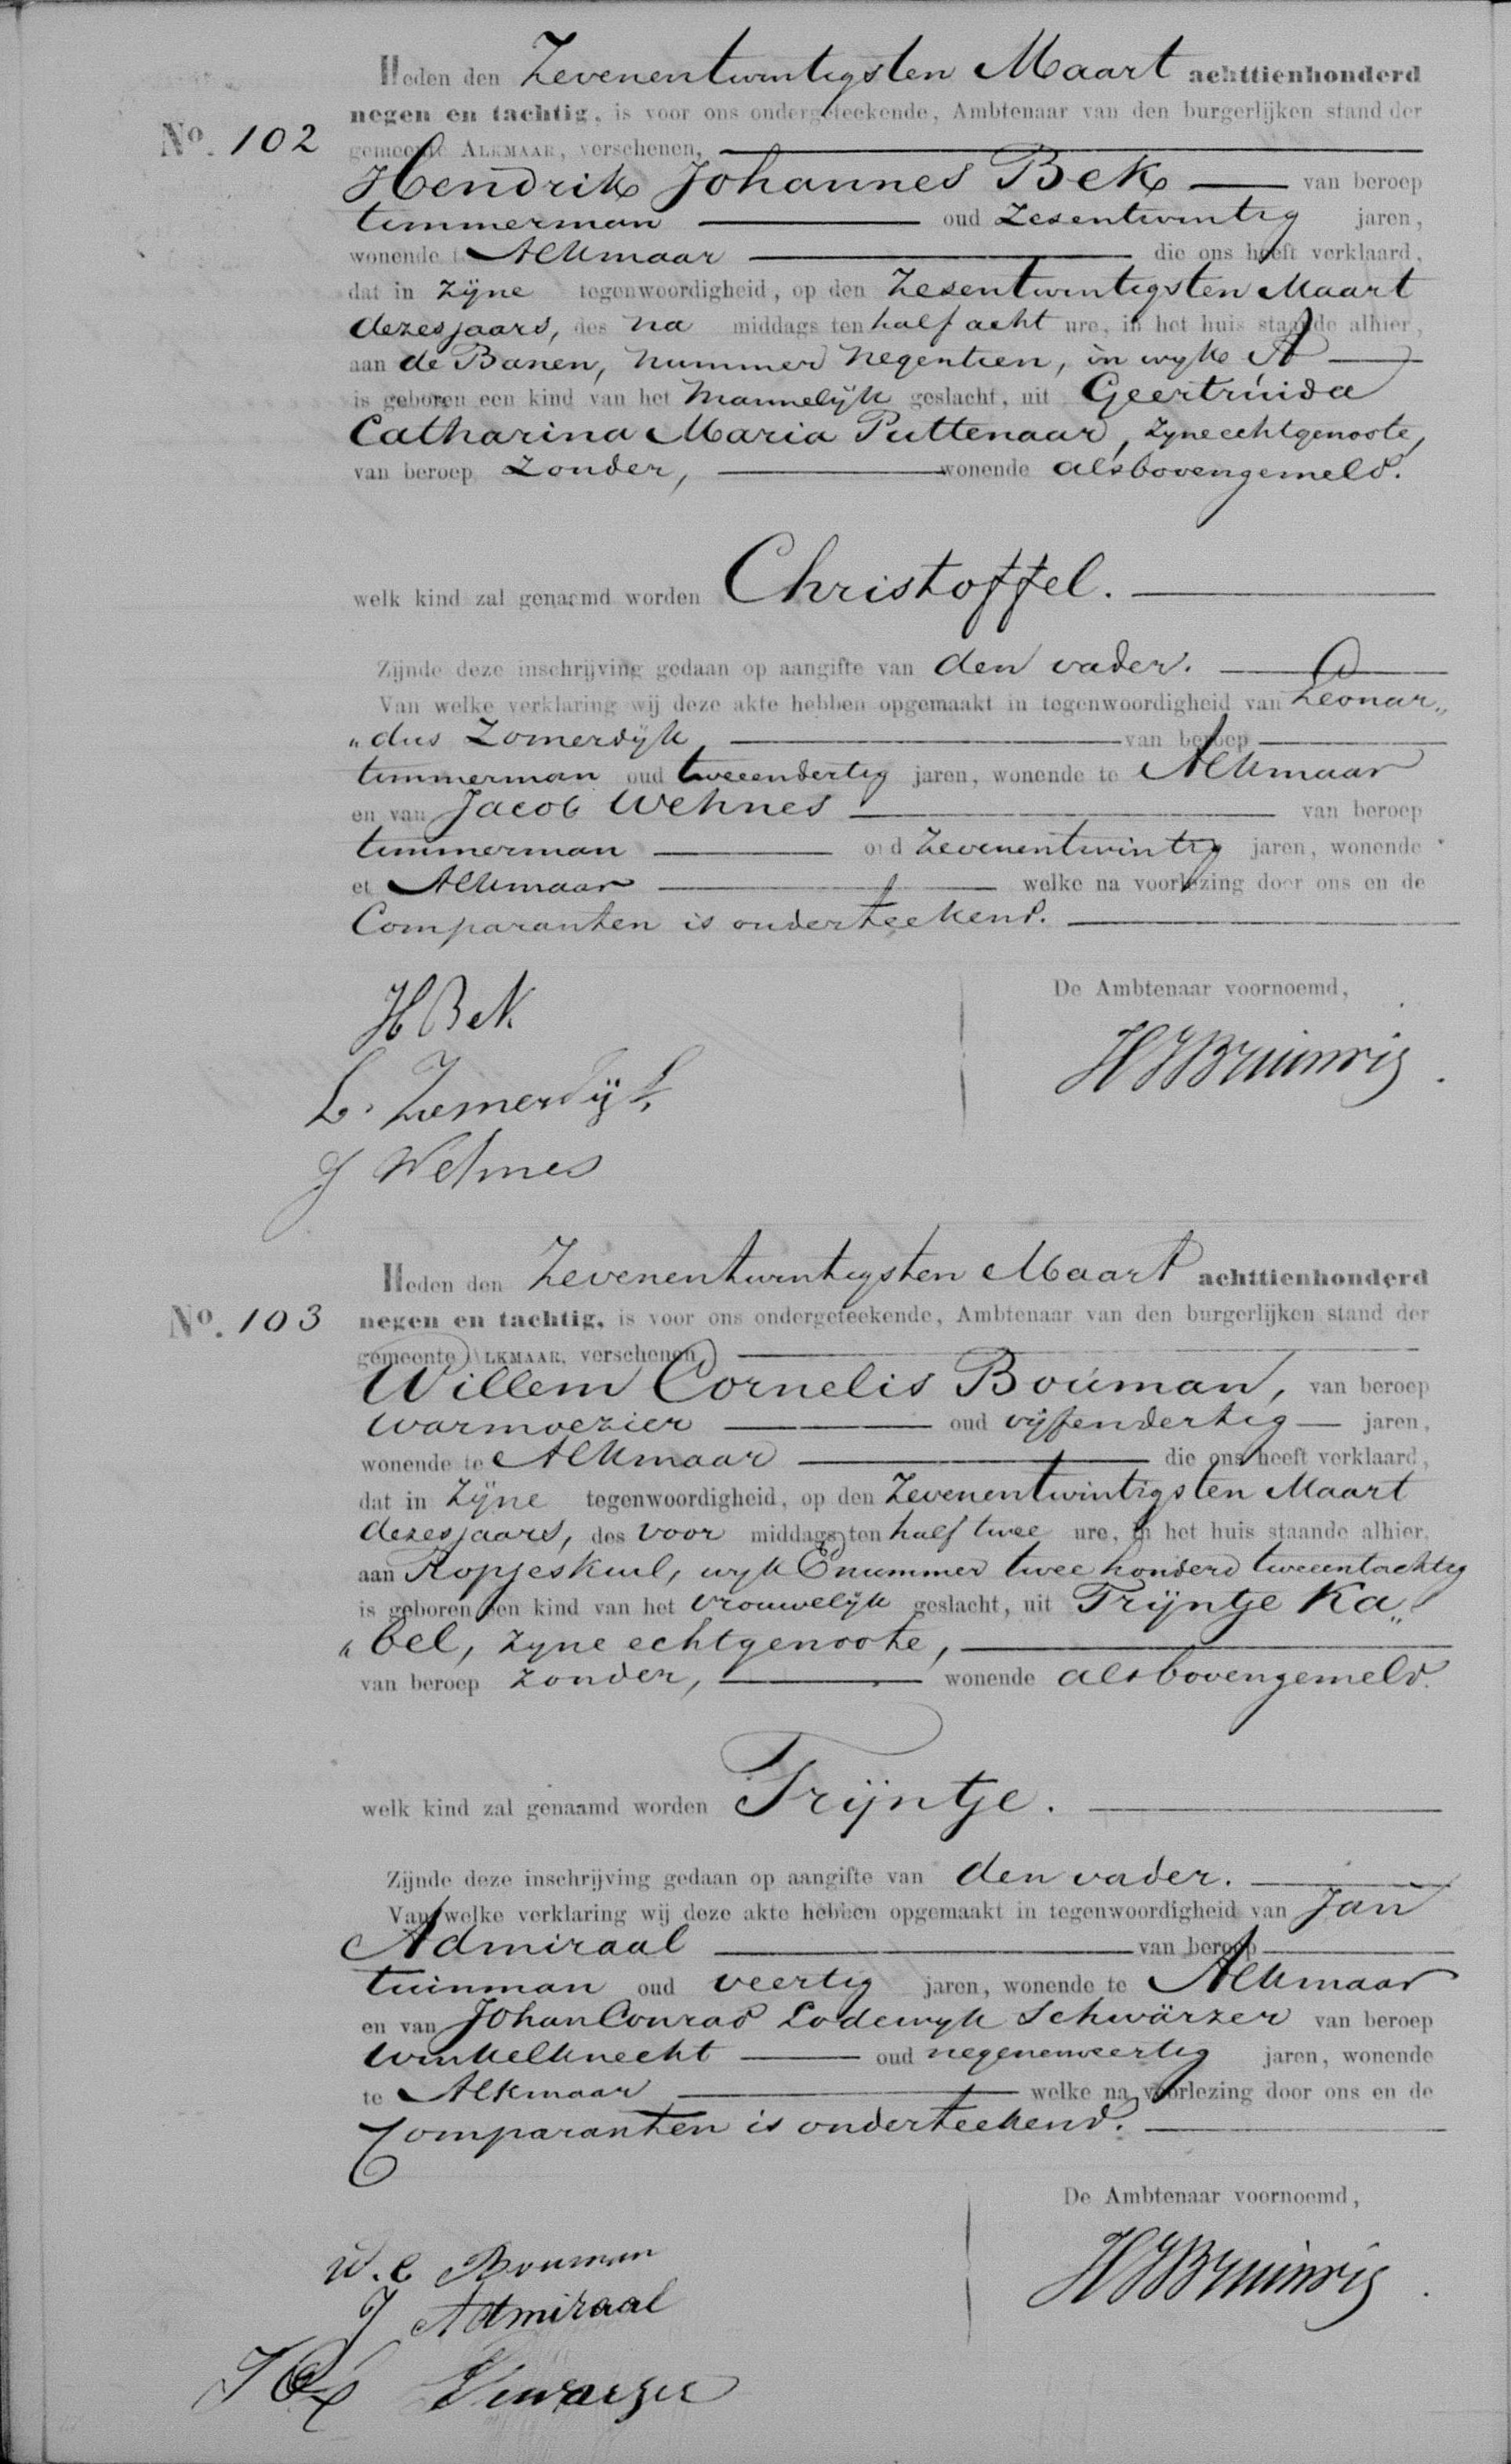 Heden den Zevenentwintigsten Maart achttienhonderd
negen en tachtig, is voor ons ondergeteekende, Ambtenaar van den burgerlijken stand der
No. 102 gemeente ALKMAAR, verschenen,
Hendrik Johannes Bek van beroep
timmerman oud Zesentwintig jaren,
wonende te Alkmaar die ons heeft verklaard,
dat in Zijne tegenwoordigheid, op den Zesentwintigsten Maart
dezesjaars, des na middags ten half acht ure, in het huis staande alhier,
aan de Banen, nummer negentien, in wyk A
is geboren een kind van het Mannelijk geslacht, uit Geertruida
Catharina Maria Puttenaar, zyne echtgenoote,
van beroep Zonder, wonende alsbovengemeld.
welk kind zal genaamd worden Christoffel.
Zijnde deze inschrijving gedaan op aangifte van den vader.
Van welke verklaring wij deze akte hebben opgemaakt in tegenwoordigheid van Leonar„
„dus Zomerdijk van beroep
timmerman oud tweeendertig jaren, wonende te Alkmaar
en van Jacob Wehnes van beroep
timmerman oud Zevenentwintig jaren, wonende
et Alkmaar welke na voorlezing door ons en de
Comparanten is onderteekend.
De Ambtenaar voornoemd,
H Bek
HJBruinvis
L. Zomerdijk
J Wehnes
Heden den Zevenentwintigsten Maart achttienhonderd
No. 103 negen en tachtig, is voor ons ondergeteekende, Ambtenaar van den burgerlijken stand der
gemeente ALKMAAR, verschenen,
Willem Cornelis Bouman, van beroep
warmoezier oud vijfendertig jaren,
wonende te Alkmaar die ons heeft verklaard,
dat in Zijne tegenwoordigheid, op den Zevenentwintigsten Maart
dezesjaars, des voor middags ten half twee ure, in het huis staande alhier,
aan Ropjeskuil, wyk E nummer twee honderd tweeentachtig
is geboren een kind van het vrouwelijk geslacht, uit Trijntje Ka„
„bel, zyne echtgenoote,
van beroep zonder, wonende alsbovengemeld.
welk kind zal genaamd worden Trijntje.
Zijnde deze inschrijving gedaan op aangifte van den vader.
Van welke verklaring wij deze akte hebben opgemaakt in tegenwoordigheid van Jan
Admiraal van beroep
tuinman oud veertig jaren, wonende te Alkmaar
en van Johan Conrad Lodewyk Schwärzer van beroep
Winkelknecht oud negenenveertig jaren, wonende
te Alkmaar welke na voorlezing door ons en de
Comparanten is onderteekend.
De Ambtenaar voornoemd,
W. C Bouman
HJBruinvis
J Admiraal